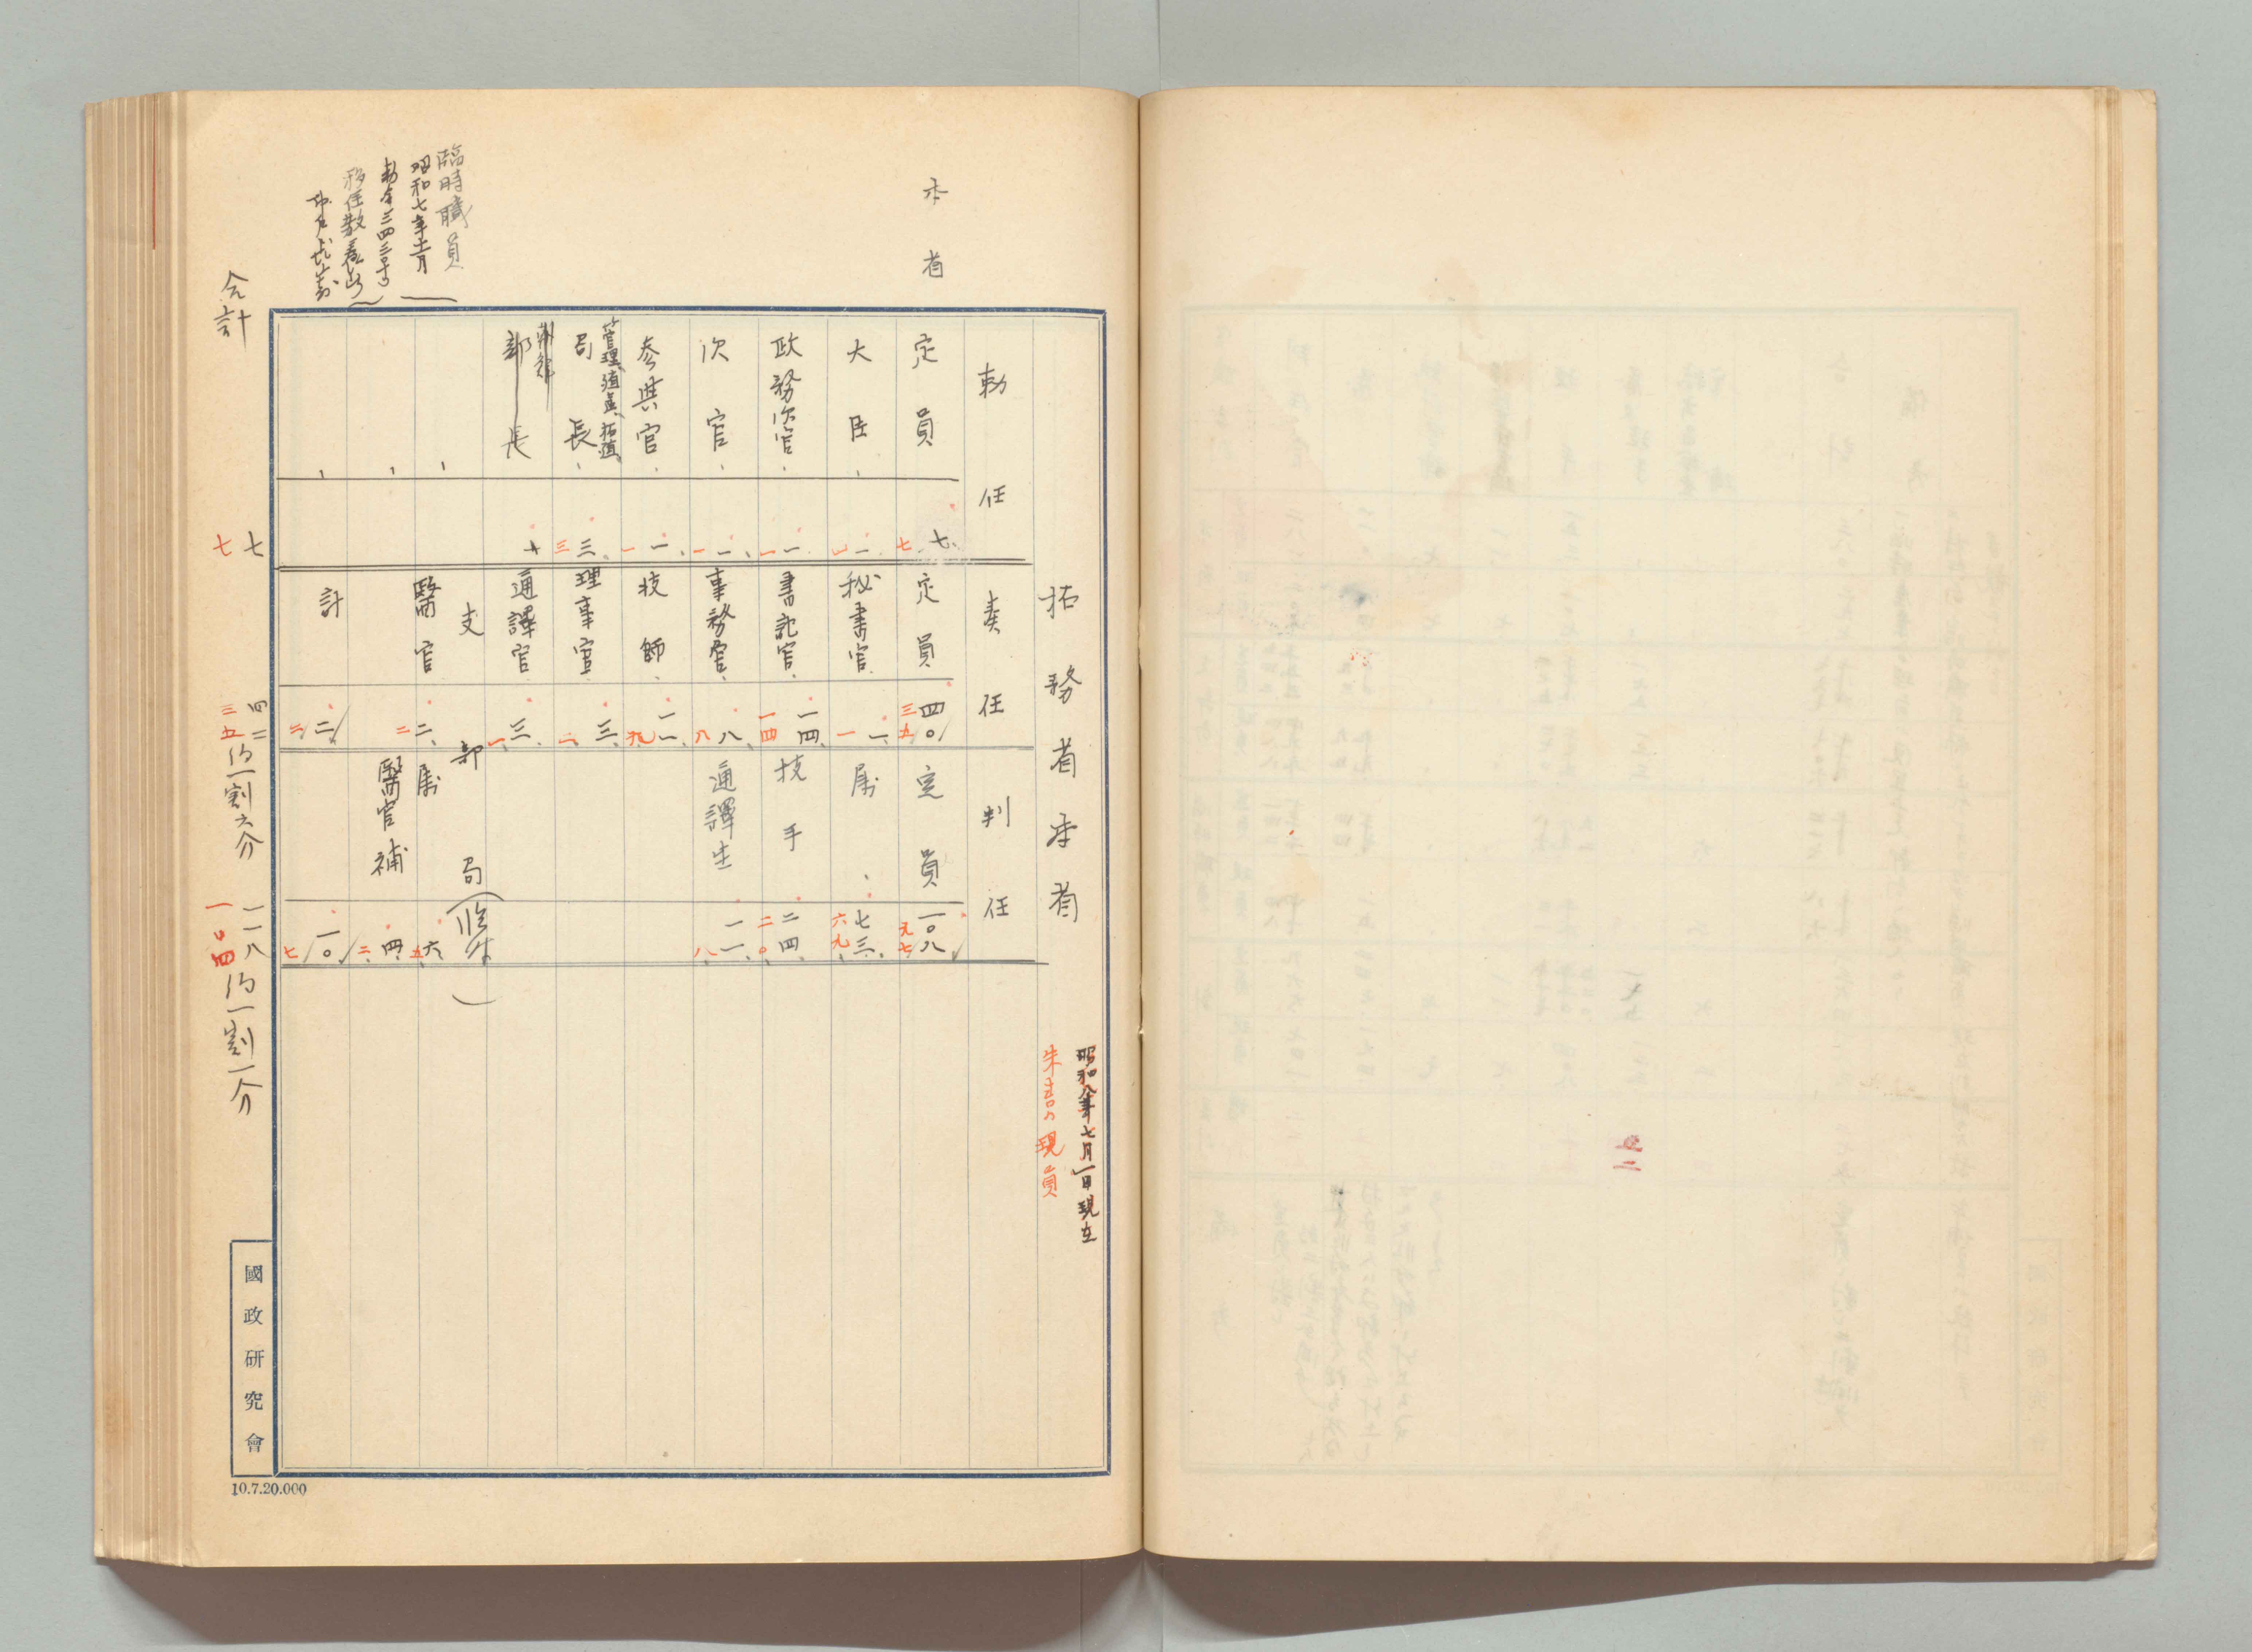 昭和八年七月一日現在
朱書ハ現員
拓務省本省
勅任
奏任
判任
本省
定員
七
七
定員
四〇
三五
定員
一〇八
九七
大臣
一
一
秘書官
一
一
属
七三
六九
政務次官
一
一
書記官
一四
一四
技手
二四
二〇
次官
一
一
事務官
八
八
通譯生
一一
八
参與官
一
一
技師
一一
九
管理、殖産、拓殖
局長
三
三
理事官
三
二
部長
通譯官
三
一
臨時職員
支部局
昭和七年十一月
勅令三四三号
移住教養所
醫官
二
二
属
六
五
醫官補
四
二
計
二
二
一〇
七
合計
七
七
四二
三五
約一割六分
一一八
一〇四
約一割一分
國政研究會
10.7.20.000